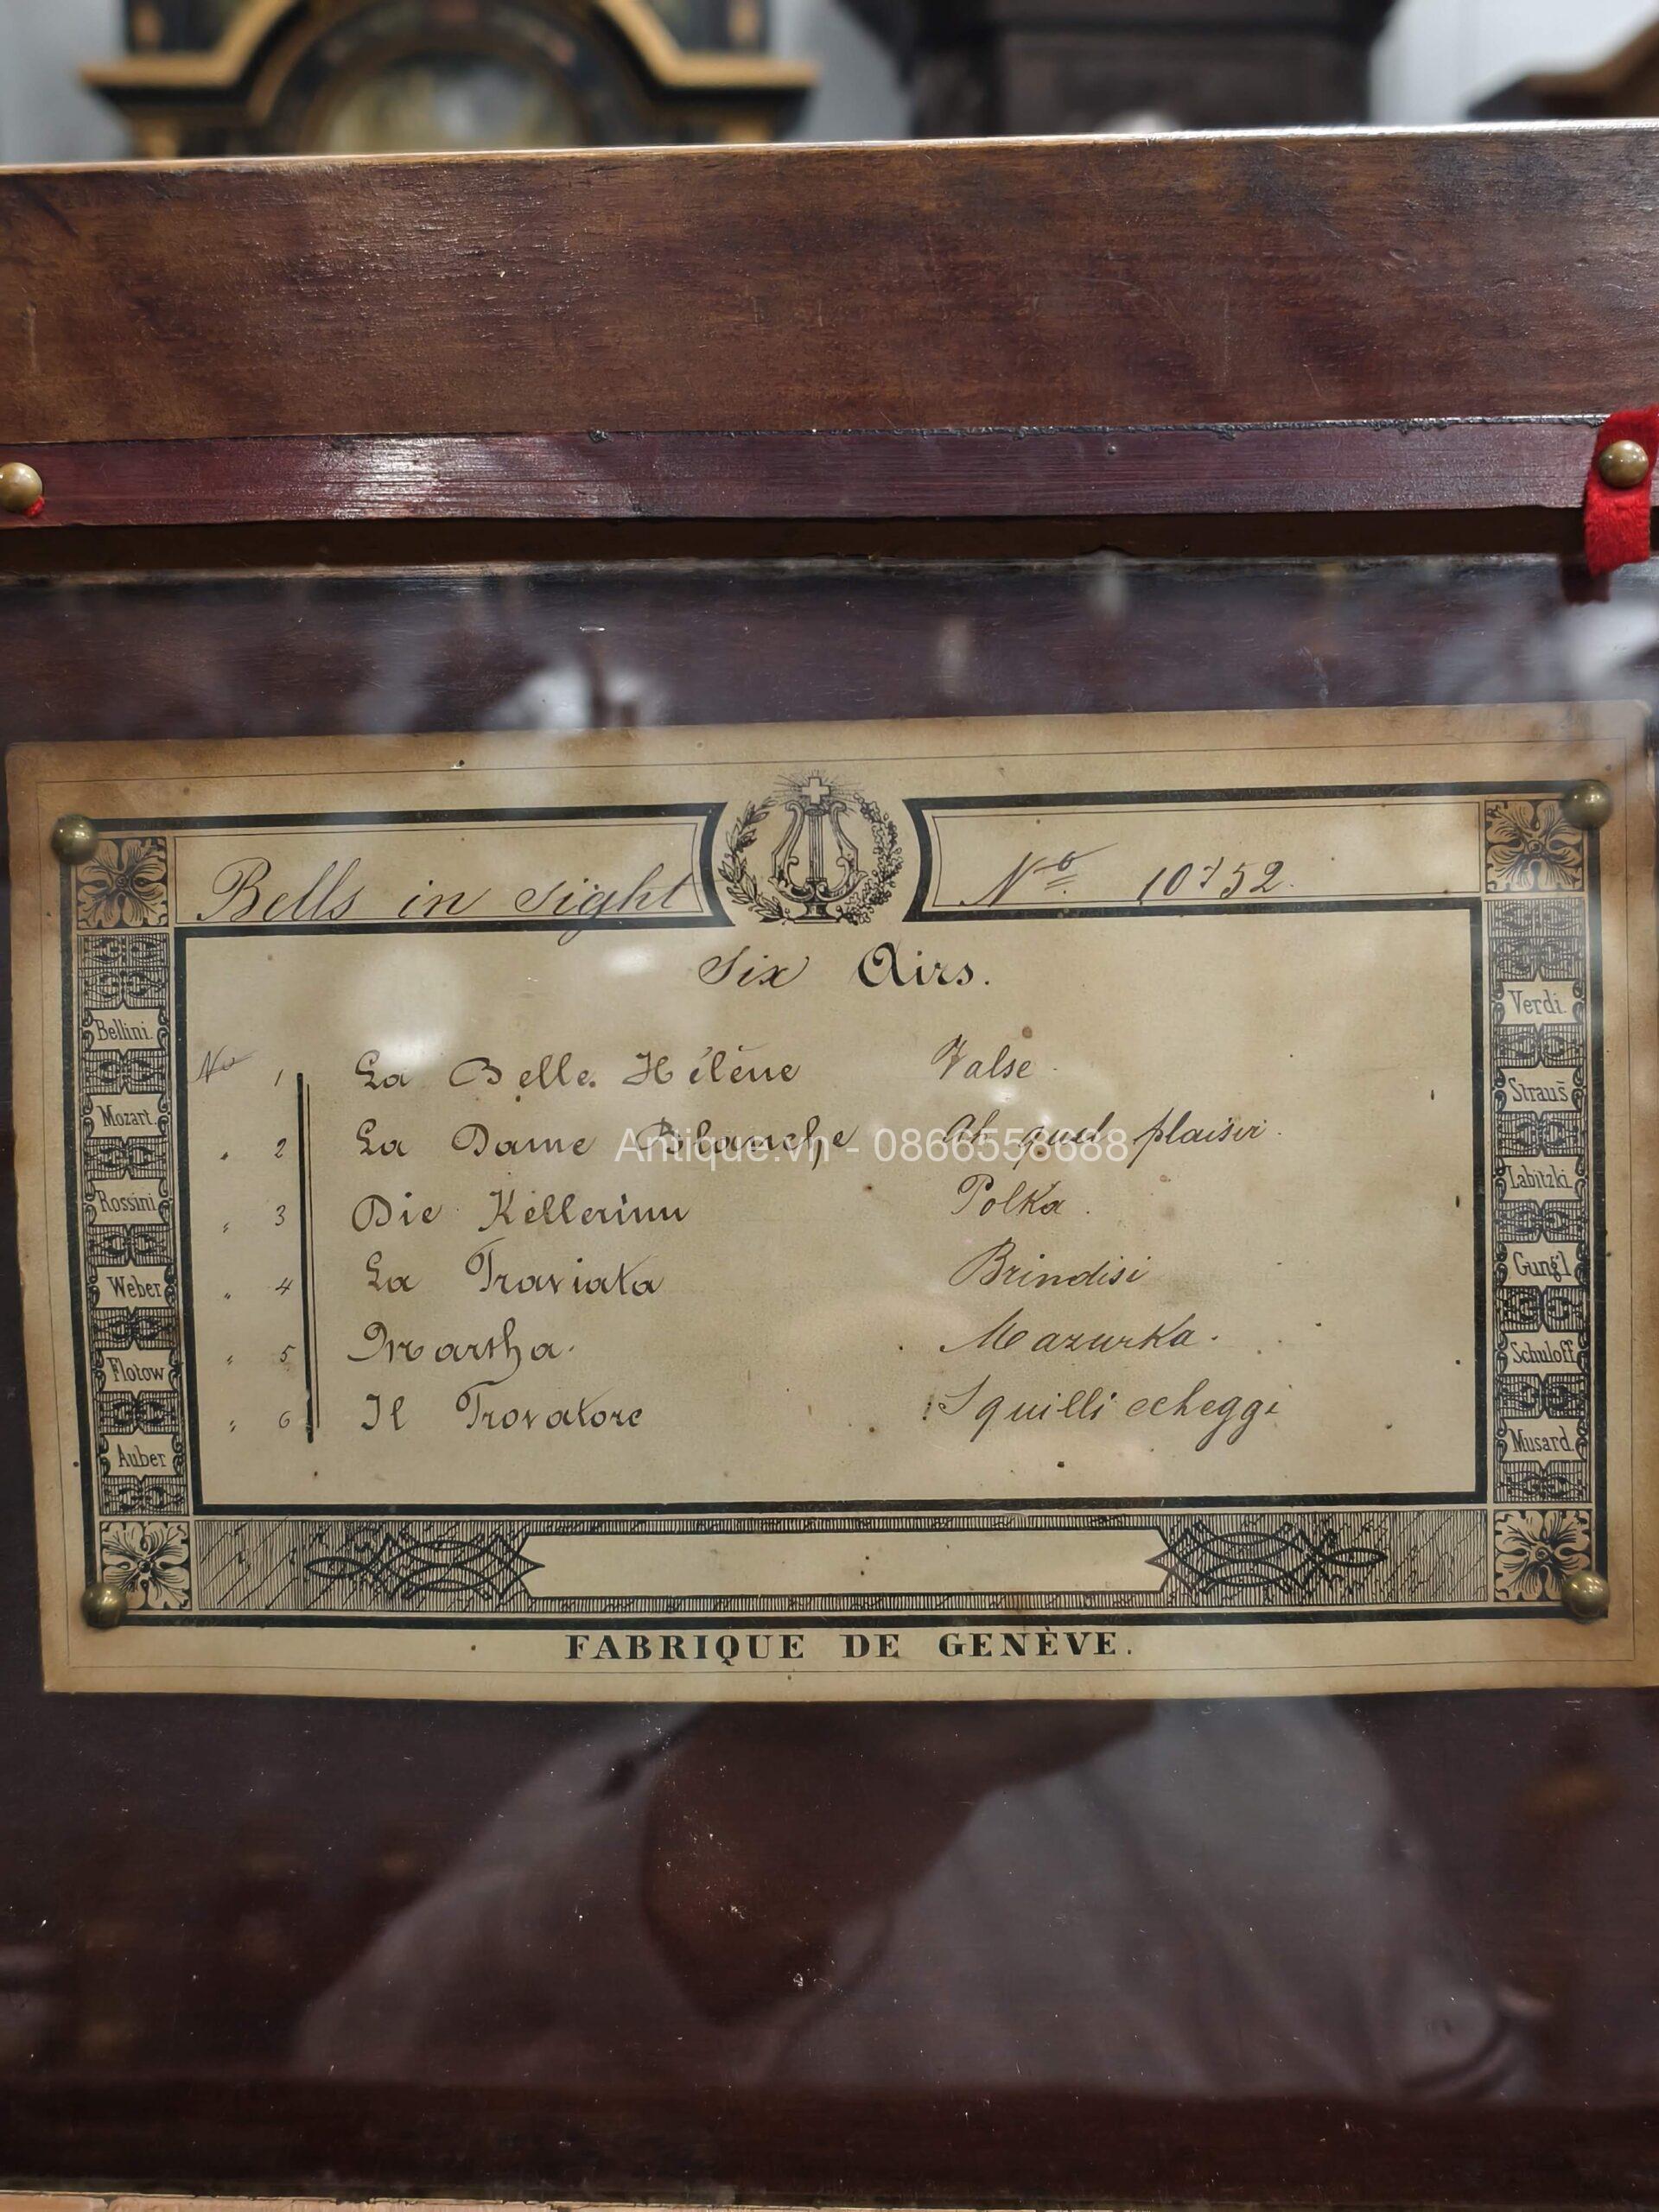 Bells in sight
No 10752.
Six Airs.
No 1 La Belle Hélène Valse
" 2 La Dame Blanche Ah quel plaisir.
" 3 Die Kellerinn Polka.
" 4 La Traviata Brindisi
" 5 Martha. Mazurka.
" 6 Il Trovatore Squilli echeggi
Bellini.
Mozart.
Rossini
Weber
Flotow
Auber
Verdi.
Straus̄
Labitzki.
Gung'l
Schuloff
Musard.
FABRIQUE DE GENÈVE.
Antique.vn - 0866558688